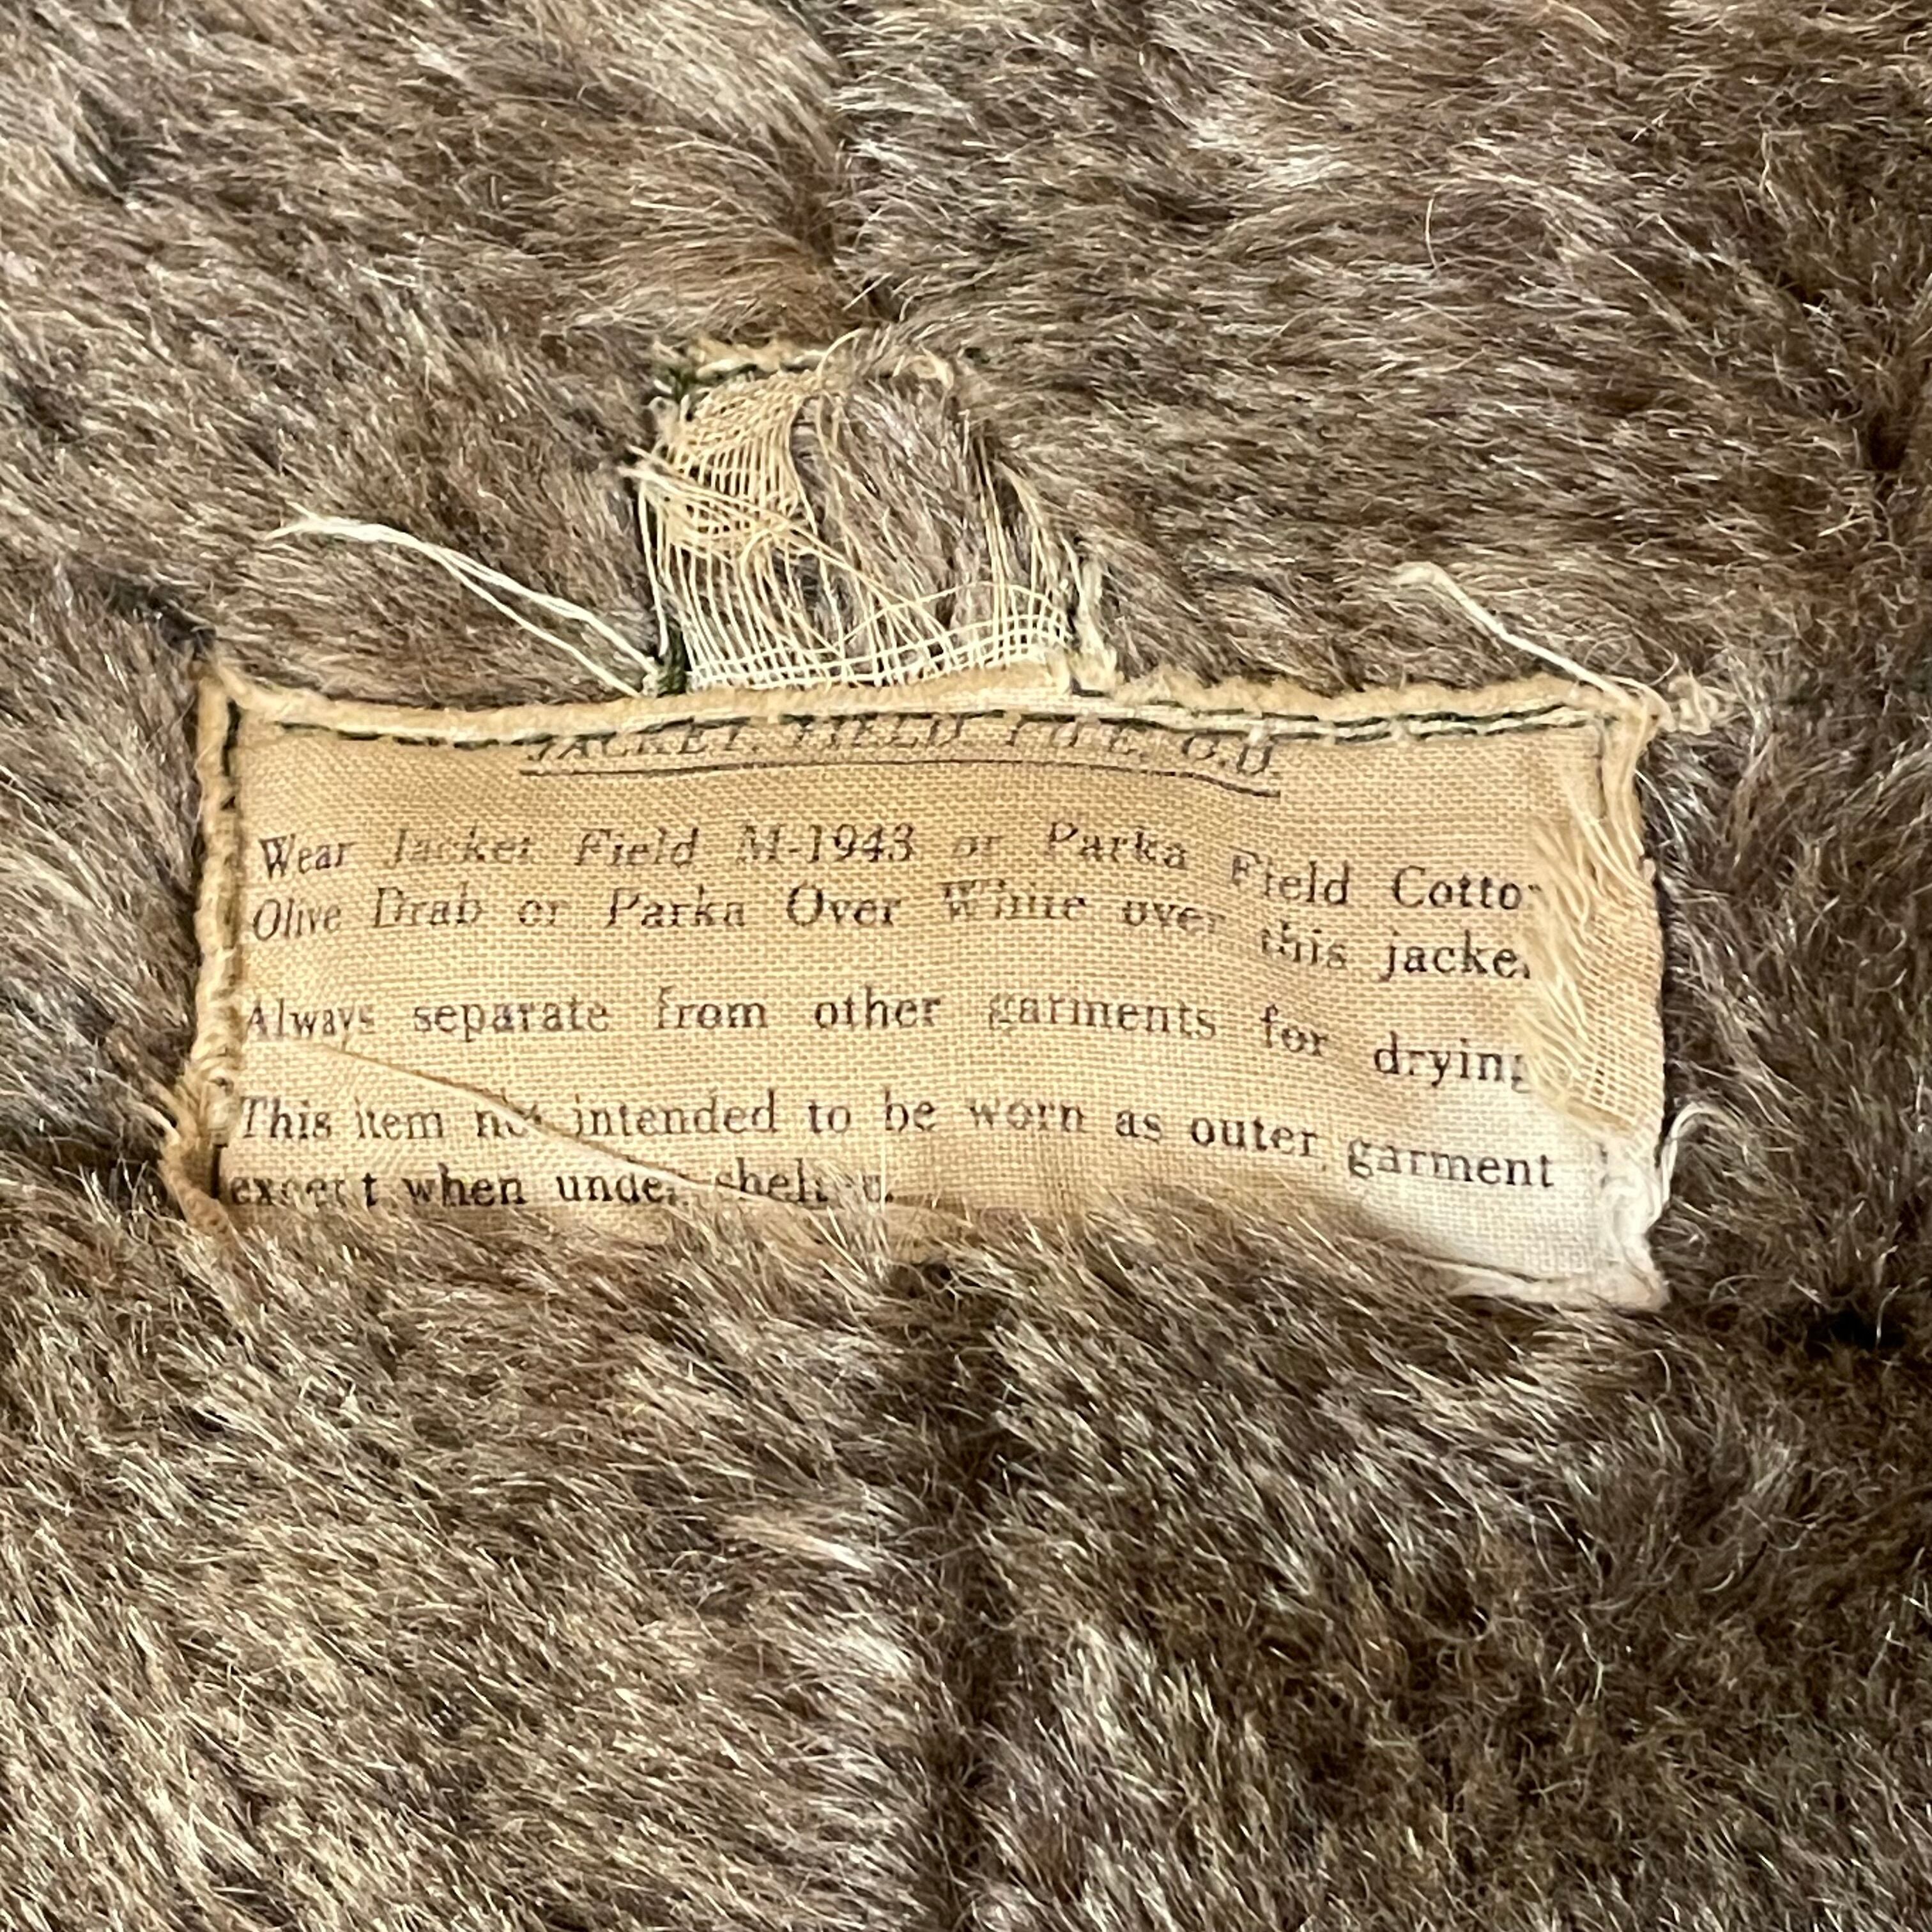 JACKET, FIELD, PILE, O.D.
Wear Jacket Field M-1943 or Parka Field Cotto
Olive Drab or Parka Over White over this jacke
Always separate from other garments for drying
This item not intended to be worn as outer garment
except when under shelter.